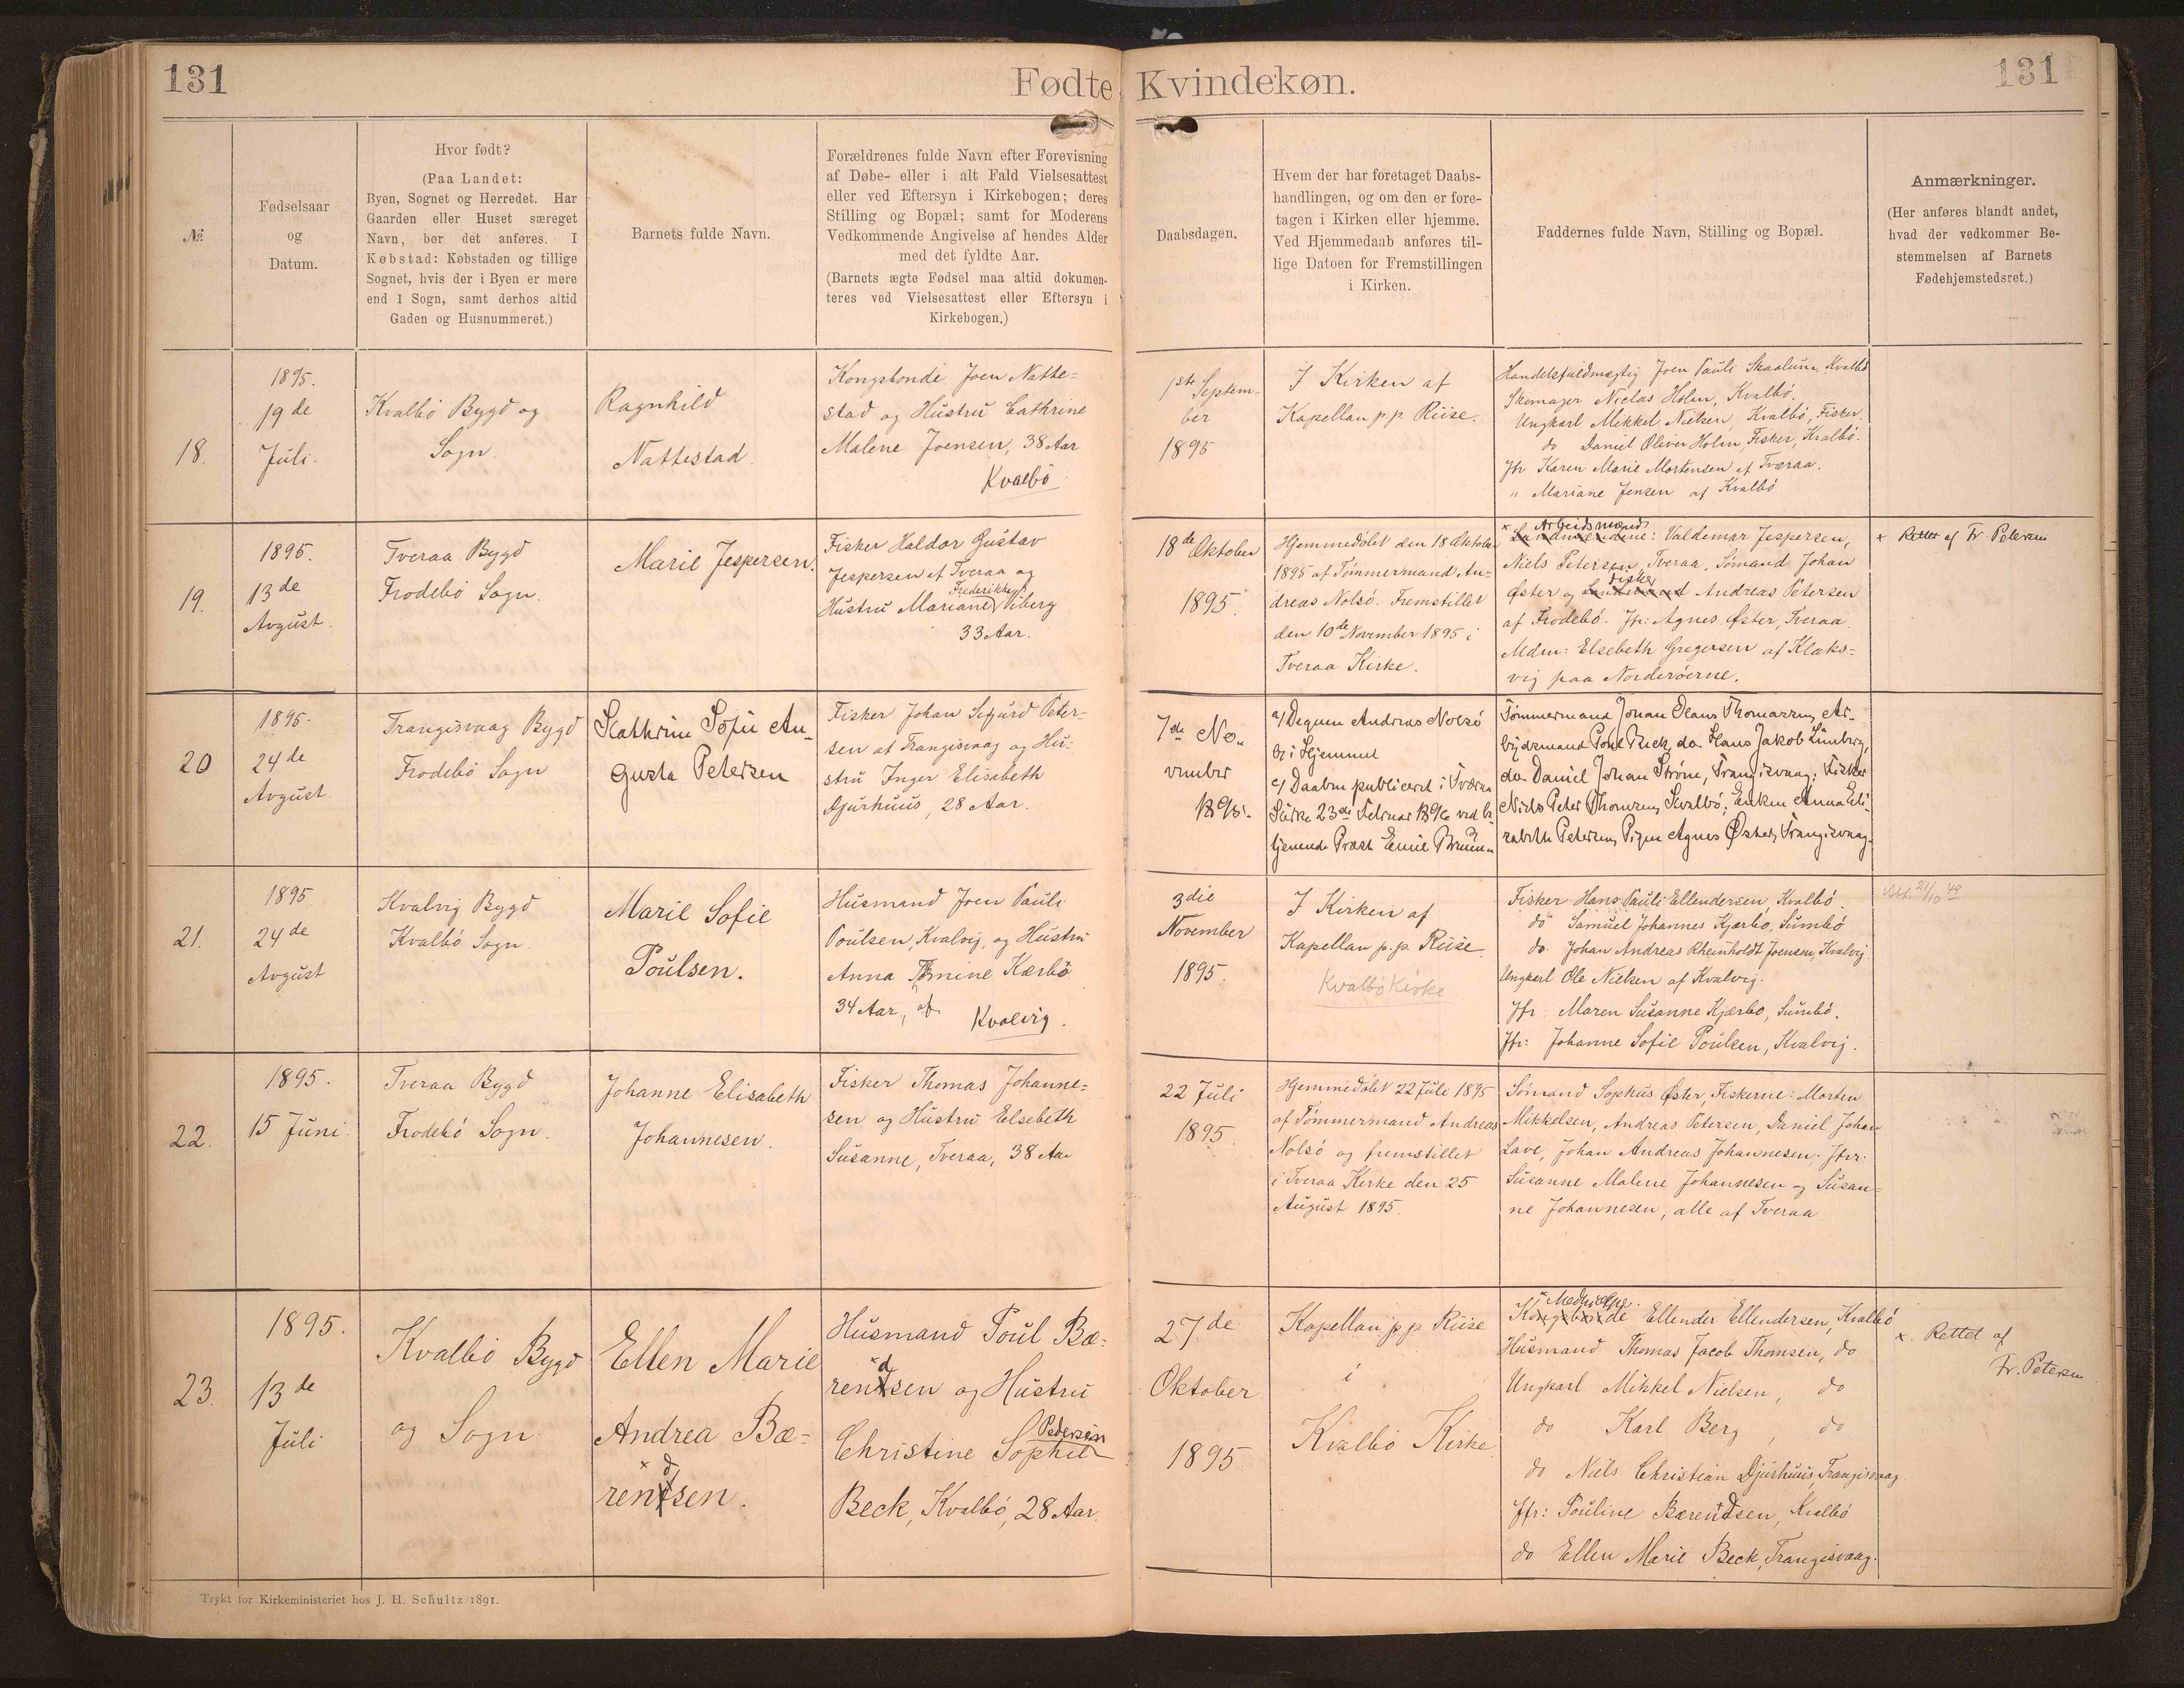 131
Fødte Kvindekøn.
131
№
Fødselsaar
og
Datum.
Hvor født?
(Paa Landet:
Byen, Sognet og Herredet. Har
Gaarden eller Huset særeget
Navn, bør det anføres. I
Købstad: Købstaden og tillige
Sognet, hvis der i Byen er mere
end 1 Sogn, samt derhos altid
Gaden og Husnummeret.)
Barnets fulde Navn.
Forældrenes fulde Navn efter Forevisning
af Døbe- eller i alt Fald Vielsesattest
eller ved Eftersyn i Kirkebogen; deres
Stilling og Bopæl; samt for Moderens
Vedkommende Angivelse af hendes Alder
med det fyldte Aar.
(Barnets ægte Fødsel maa altid dokumen-
teres ved Vielsesattest eller Eftersyn i
Kirkebogen.)
Daabsdagen.
Hvem der har foretaget Daabs-
handlingen, og om den er fore-
tagen i Kirken eller hjemme.
Ved Hjemmedaab anføres til-
lige Datoen for Fremstillingen
i Kirken.
Faddernes fulde Navn, Stilling og Bopæl.
Anmærkninger.
(Her anføres blandt andet,
hvad der vedkommer Be-
stemmelsen af Barnets
Fødehjemstedsret.)
18.
1895.
19de
Juli.
Kvalbö Bygd og
Sogn.
Ragnhild
Nattestad.
Kongsbonde Joen Natte=
stad og Hustru Cathrine
Malene Joensen, 38 Aar
Kvalbö
1ste Septem-
ber
1895
I Kirken af
Kapellan p.p. Riise.
Handelsfuldmægtig Joen Pauli Skaalum Kvalbö
Skomager Niclas Holm, Kvalbö.
Ungkarl Mikkel Nielsen, Kvalbö, Fisker.
do Daniel Oliver Holm, Fisker, Kvalbö.
Jfr Karen Marie Mortensen af Tveraa.
" Mariane Jensen af Kvalbö
19.
1895.
13de
Avgust.
Tveraa Bygd
Frodebö Sogn.
Marie Jespersen.
Fisker Haldor Gustav
Jespersen af Tveraa og
Frederikke
Hustru Mariane Viberg
33 Aar.
18de Oktober
1895.
Hjemmedöbt den 18 Oktober
1895 af Tömmermand An=
dreas Nolsö. Fremstillet
den 10de November 1895 i
Tveraa Kirke.
x Arbeidsmænd
Landmændene: Valdemar Jespersen,
Niels Petersen, Tveraa, Sömand Johan
Fisker
Öster og Landmand Andreas Petersen
af Frodebö. Jfr: Agnes Øster, Tveraa.
Mdm: Elsebeth Gregersen af Klæks=
vig paa Norderöerne.
x Rettet af Fr. Petersen
20
1895.
24de
Avgust
Trangisvaag Bygd
Frodebö Sogn
Kathrine Sofie Au-
gusta Petersen
Fisker Johan Sigurd Peter=
sen af Trangisvaag og Hu=
stru Inger Elisabeth
Djurhuus, 28 Aar.
7de No-
vember
1895.
a/ Degnen Andreas Nolsö
b/ i Hjemmet
c/ Daaben publiceret i Tværaa
Kirke 23de Februar 1896 ved be-
tjenende Præst Emil Bruun
Tömmermand Johan Olaus Thomassen, Ar-
bejdsmand Poul Beck, do Hans Jakob Limberg,
do Daniel Johan Ström, Trangisvaag; Fisker
Niels Peter Thomsen, Kvalbö; Enken Anna Eli-
sabeth Petersen, Pigen Agnes Øster, Trangisvaag.
21.
1895
24de
Avgust
Kvalvig Bygd
Kvalbö Sogn.
Marie Sofie
Poulsen.
Husmand Joen Pauli
Poulsen, Kvalvig, og Hustru
Anna Kærbö
34 Aar, af Kvalvig.
3die
November
1895.
I Kirken af
Kapellan p.p. Riise
Kvalbö Kirke
Fisker Hans Pauli Ellendersen, Kvalbö.
do Samuel Johannes Kjærbo, Sumbö
do Johan Andreas Rheinholdt Joensen, Kvalvig.
Ungkarl Ole Nielsen af Kvalvig.
Jfr: Maren Susanne Kjærbo, Sumbö.
Jfr: Johanne Sofie Poulsen, Kvalvig.
21/10 49
22.
1895.
15 Juni.
Tveraa Bygd
Frodebö Sogn.
Johanne Elisabeth
Johannesen.
Fisker Thomas Johanne=
sen og Hustru Elsebeth
Susanne, Tveraa, 38 Aar
22 Juli
1895.
Hjemmedöbt 22 Juli 1895
af Tömmermand Andreas
Nolsö og fremstillet
i Tveraa Kirke den 25
August 1895.
Sömand Sophus Øster, Fiskerne: Morten
Mikkelsen, Andreas Petersen, Daniel Johan
Lave, Johan Andreas Johannesen. Jfrr:
Susanne Malene Johannesen og Susan=
ne Johannesen, alle af Tveraa
23.
1895.
13de
Juli
Kvalbö Bygd
og Sogn.
Ellen Marie
Andrea Bæ=
x d
rentsen.
Husmand Poul Bæ=
x d
rentsen og Hustru
Pedersen
Christine Sophie
Beck, Kvalbö, 28 Aar.
27de
Oktober
1895
Kapellan p.p. Riise
i
Kvalbö Kirke
Kongsbonde Ellender Ellendersen, Kvalbö
Husmand Thomas Jacob Thomsen, do
Ungkarl Mikkel Nielsen, do
do Karl Berg, do
do Niels Christian Djurhuus, Trangisvaag
Jfr: Pouline Bærentdsen, Kvalbö
do Ellen Marie Beck, Trangisvaag.
x. Rettet af
Fr. Petersen
Trykt for Kirkeministeriet hos J. H. Schultz 1891.